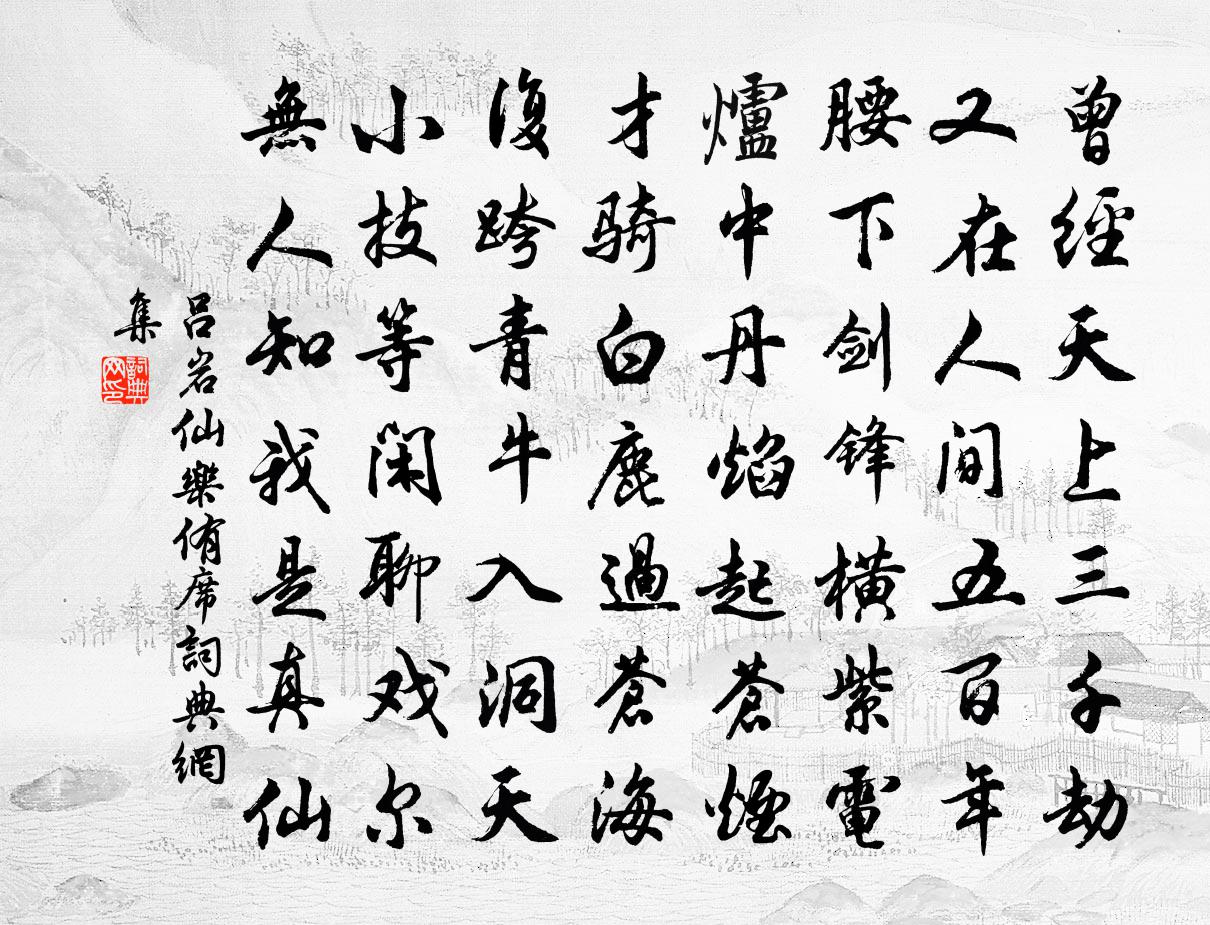 曾經天上三千劫
又在人間五百年
腰下劍鋒橫紫電
爐中丹焰起蒼煙
才騎白鹿過蒼海
復跨青牛入洞天
小技等閑聊戏尔
無人知我是真仙
呂岩仙樂侑席詞典網
集
詞典
网印